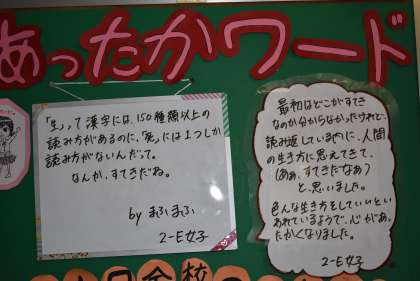 あったかワード
「生」って漢字には、150種類以上の
読み方があるのに、「死」には1つしか
読み方がないんだって。
なんか、すてきだね。
by まふまふ
2-E女子
最初はどこがすてき
なのか分からなかったけれど、
読み返しているうちに、人間
の生き方に思えてきて、
(あぁ、すてきだなあ)
と、思いました。
色んな生き方をしていいとい
われているようで、心があっ
たかくなりました。
2-E女子